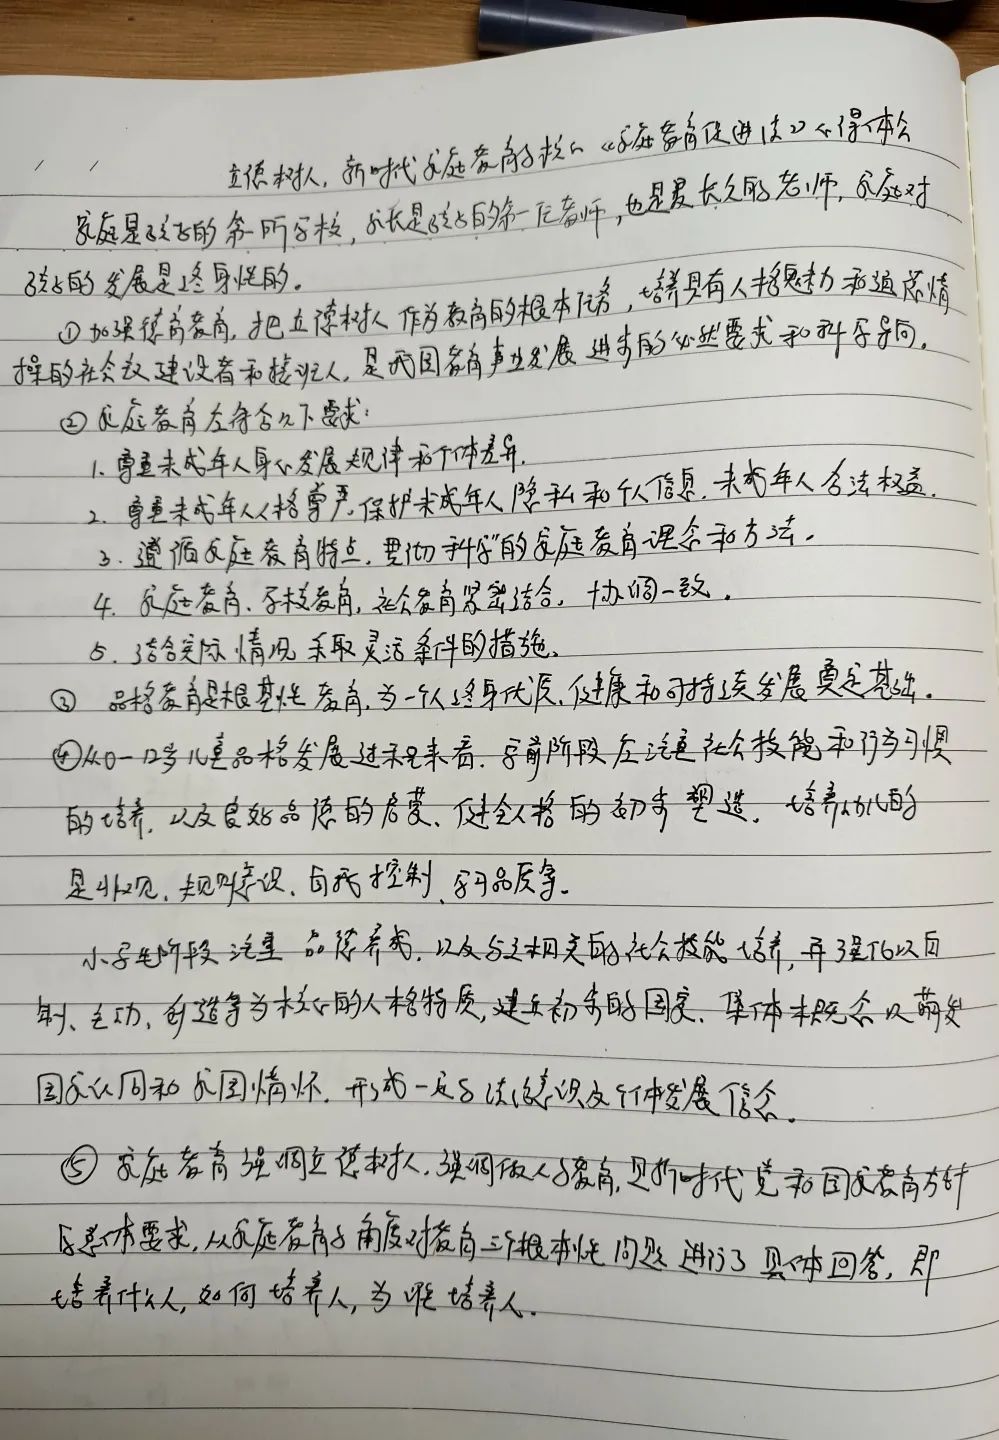 立德树人,新时代家庭教育的核心《家庭教育促进法》心得体会
家庭是孩子的第一所学校,家长是孩子的第一任老师,也是最长久的老师,家庭对
孩子的发展是终身性的。
①加强德育教育,把立德树人作为教育的根本任务,培养具有人格魅力和道德情
操的社会主义建设者和接班人,是我国教育事业发展进步的必然要求和科学导向。
②家庭教育应符合以下要求:
1.尊重未成年人身心发展规律和个体差异.
2.尊重未成年人人格尊严,保护未成年人隐私和个人信息.未成年人合法权益.
3.遵循家庭教育特点,贯彻科学的家庭教育理念和方法.
4.家庭教育、学校教育,社会教育紧密结合,协调一致.
5.结合实际情况采取灵活条件的措施.
③品格教育是根基性教育,为一个人终身代后、健康和可持续发展奠定基础.
④从0-12岁儿童品格发展过程来看,学前阶段应注重社会技能和行为习惯
的培养,以及良好品德的启蒙、健全人格的初步塑造.培养幼儿的
是非观、规则意识、自我控制、学习品质等.
小学生阶段注重品德养成,以及与之相关的社会技能培养,再强化以自
制、主动、创造等为核心的人格特质,建立初步的国家、集体概念以萌发
国家认同和家国情怀,形成一定的法治意识及个体发展信念.
⑤家庭教育强调立德树人,强调做人的教育,是新时代党和国家教育方针
的总体要求,从家庭教育的角度对教育三个根本性问题进行了具体回答,即
培养什么人,如何培养人,为谁培养人.